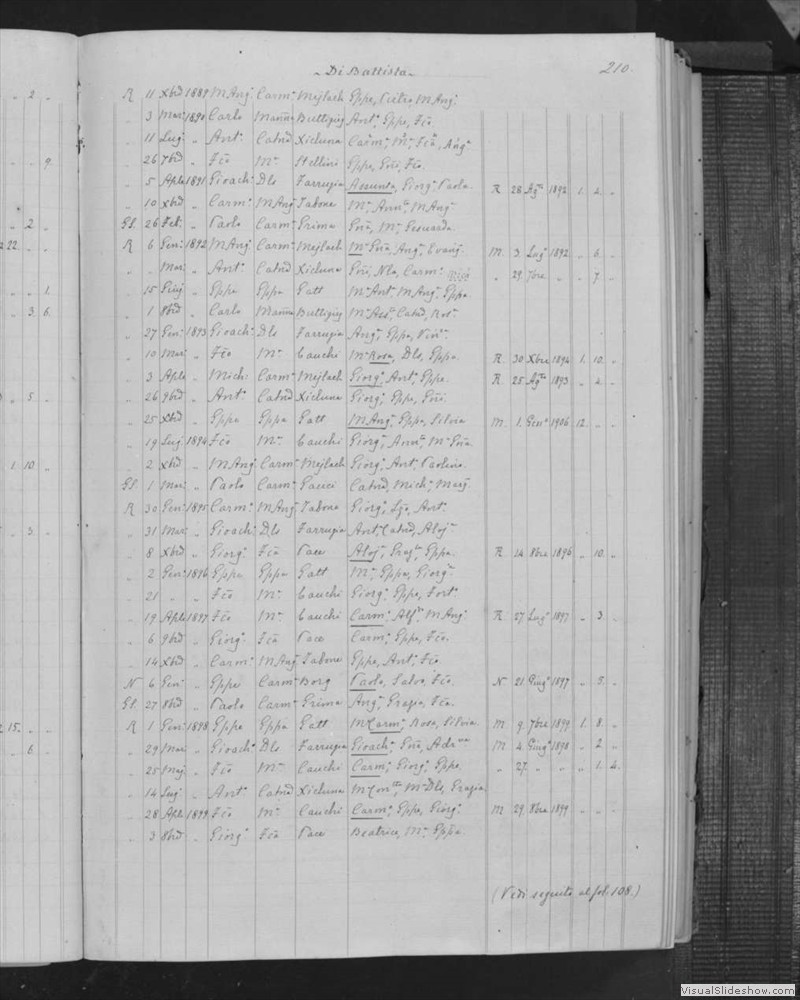 Di Battista 210.
2 R 11 Xbre 1889 M Ang. Carm. Mejlach Gppe, Pietro, M Ang.
3 Mar. 1890 Carlo Buttigieg Ant. Gppe, Fco.
11 Lug. Ant. Catnã Xicluna Carm. Ma Fca, Ang.
9. 26 7brẽ Fco Ma Stellini Gppe, Gni, Fco.
5 Aple 1891 Gioach. Dls Farrugia Assunta, Giorg. Paola R 28 Agto 1892 1. 2.
10 Xbrẽ Carm. M Ang. Tabone Ma Annta M Ang.
2 Gl. 26 Feb. Paolo Carm. Grima Gna, Ma Gesuarda
22 R 6 Gen. 1892 M Ang. Carm. Mejlach Ma Gna, Ang. Evang. M. 3 Lug. 1892 6.
Mar. Ant. Catnã Xicluna Gni, Nla, Carm. 29. 7bre 7.
1. 15 Giug. Gppe Gppa Gatt Ma Ant. M Ang. Gppa
3 6. 1 8brẽ Carlo Buttigieg Ma Ass. Catnã, Ros.
27 Gen. 1893 Gioach. Dls Farrugia Ang. Gppa, Vin.
10 Mar. Fco Ma Cauchi Ma Rosa, Dls, Gppa. R. 30 Xbre 1894 1. 10.
3 Aple Mich. Carm. Mejlach Giorg. Ant. Gppe. R. 25 Agto 1893 4.
5 26 9brẽ Ant. Catnã Xicluna Giorg. Gppe, Gni.
25 Xbrẽ Gppe Gppa Gatt M Ang. Gppa, Silvia M. 1. Geno 1906 12.
19 Lug. 1894 Fco Ma Cauchi Giorg. Annta Ma Gna.
1 10 2 Xbrẽ M Ang. Carm. Mejlach Giorg. Ant. Paolino.
Gl. 1 Mar. Paolo Carm. Catnã, Mich. Marg.
R 30 Gen. 1895 Carm. M Ang. Tabone Giorg. Lzo, Ant.
3 31 Mar. Gioach. Dls Farrugia Ant. Catnã, Aloj.
8 Xbrẽ Giorg. Fca Pace Aloj. Graz. Gppa. R. 14 8bre 1896 10.
2 Gen. 1896 Gppe Gppa Gatt Ma Gppa, Giorg.
21 Fco Ma Cauchi Giorg. Gppe, Fort.
19 Aple 1897 Fco Ma Cauchi Carm. Alf. M Ang. R. 27 Lugo 1897 3.
6 9brẽ Giorg. Fca Pace Carm. Gppe, Fco.
14 Xbrẽ Carm. M Ang. Tabone Gppe, Ant. Fco
N 6 Gen. Gppe Carm. Borg Paolo, Salvo, Fco. N 21. Giugo 1897 5.
Gl. 27 8brẽ Paolo Carm. Grima Ang. Grazia, Fca.
15. R 1 Gen. 1898 Gppe Gppa Gatt M Carm. Rosa, Silvia. M 9. 7bre 1899 1. 8.
6 29 Mar. Gioach. Dls Farrugia Gioach. Gni, M 4 Giugo 1898 2
25 Mag. Fco Ma Cauchi Carm. Giorg. Gppe. 27. 1. 4.
14 Lug. Ant. Catnã Xicluna Ma Dls, Grazia
28 Aple 1899 Fco Ma Cauchi Carm. Gppe, Giorg. M 29. 8bre 1899
3 8brẽ Giorg. Fca Pace Beatrice, Ma Gppa
(Vedi seguito al fol. 108.)
VisualSlideshow.com